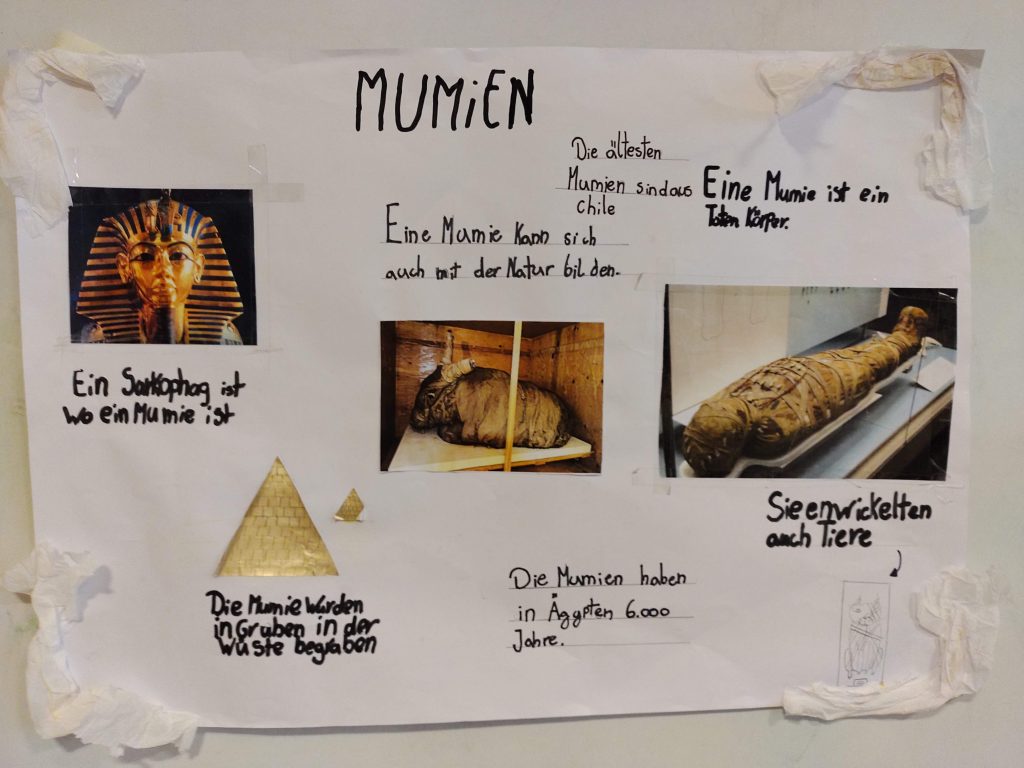 MUMiEN
Die ältesten
Mumien sind aus
chile
Eine Mumie ist ein
Toten Körper.
Eine Mumie Kann sich
auch mit der Natur bilden.
Ein Sarkophag ist
wo ein Mumie ist
Sie enwickelten
auch Tiere
Die Mumie wurden
in Gruben in der
Wüste begraben
Die Mumien haben
in Ägypten 6.000
Jahre.